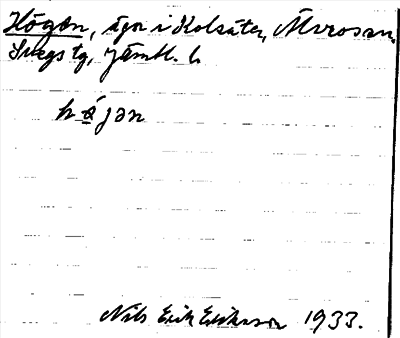 Högen, ägor i Kolsäter, Älvros sn,
Svegs tg, Jämtl. l.
hǿjən
Nils Erik Eriksson 1933.